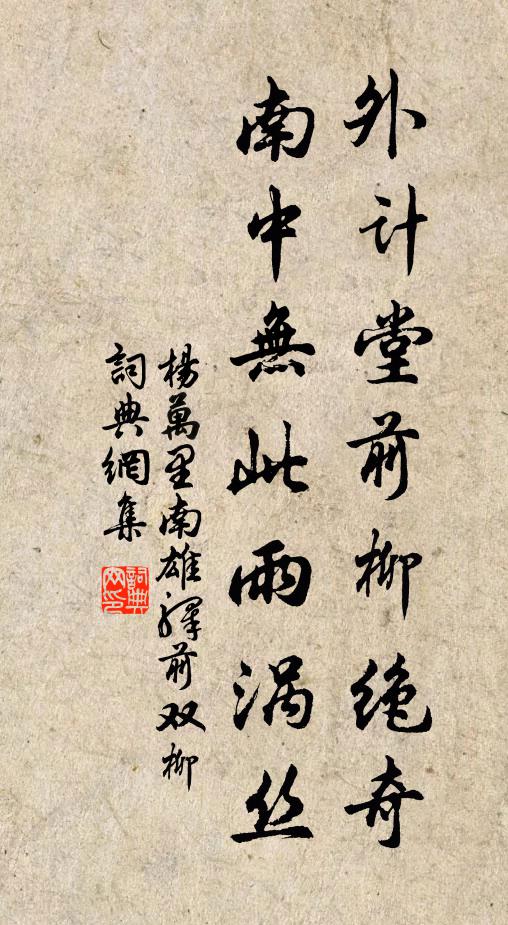 外计堂前柳绝奇
南中無此兩涡丝
楊萬里南雄驛前双柳
詞典網集
詞典网印